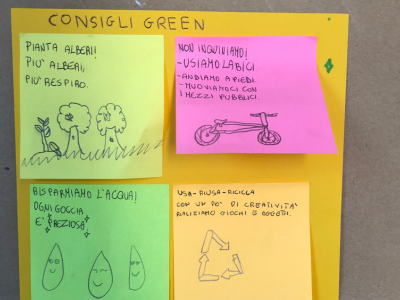 CONSIGLI GREEN
PIANTA ALBERI!
PIU' ALBERI,
PIU' RESPIRO.
NON INQUINIAMO!
-USIAMO LA BICI
-ANDIAMO A PIEDI.
-MUOVIAMOCI CON
I MEZZI PUBBLICI.
RISPARMIAMO L'ACQUA!
OGNI GOCCIA
E' PREZIOSA
USA-RIUSA-RICICLA
CON UN PO' DI CREATIVITA'
RALIZIAMO GIOCHI E OGGETTI.